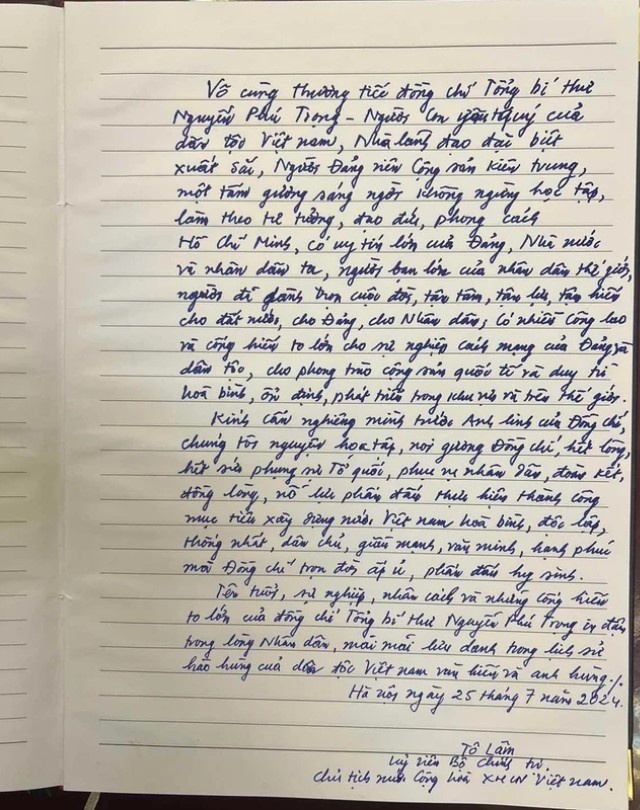 Vô cùng thương tiếc đồng chí Tổng bí thư
Nguyễn Phú Trọng - Người con yêu quý của
dân tộc Việt nam, Nhà lãnh đạo đặc biệt
xuất sắc, Người Đảng viên Cộng sản kiên trung,
một tấm gương sáng ngời không ngừng học tập,
làm theo tư tưởng, đạo đức, phong cách
Hồ Chí Minh, có uy tín lớn của Đảng, Nhà nước
và nhân dân ta, người bạn lớn của nhân dân thế giới,
người đã dành trọn cuộc đời, tận tâm, tận lực, tận hiến
cho đất nước, cho Đảng, cho Nhân dân; Có nhiều công lao
và cống hiến to lớn cho sự nghiệp cách mạng của Đảng và
dân tộc, cho phong trào cộng sản quốc tế và duy trì
hoà bình, ổn định, phát triển trong khu vực và trên thế giới.
Kính cẩn nghiêng mình trước Anh linh của Đồng chí,
chúng tôi nguyện học tập, noi gương Đồng chí, hết lòng,
hết sức phụng sự Tổ quốc, phục vụ nhân dân, đoàn kết,
đồng lòng, nỗ lực phấn đấu thực hiện thành công
mục tiêu xây dựng nước Việt nam hoà bình, độc lập,
thống nhất, dân chủ, giàu mạnh, văn minh, hạnh phúc
mà Đồng chí trọn đời ấp ủ, phấn đấu hy sinh.
Tên tuổi, sự nghiệp, nhân cách và những cống hiến
to lớn của đồng chí Tổng bí thư Nguyễn Phú Trọng in đậm
trong lòng Nhân dân, mãi mãi lưu danh trong lịch sử
hào hùng của dân tộc Việt Nam văn hiến và anh hùng./.
Hà nội ngày 25 tháng 7 năm 2024.
Tô Lâm
Uỷ viên Bộ Chính trị
Chủ tịch nước Cộng hoà XHCN Việt nam.